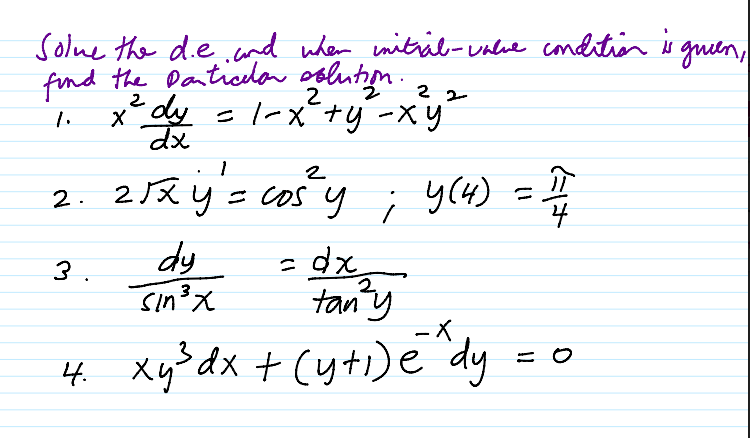 Solve the d.e. and when initial-value condition is given,
find the particular solution.
1. x² dy/dx = 1-x²+y²-x²y²
2. 2√x y' = cos²y ; y(4) = π/4
3. dy/sin³x = dx/tan²y
4. xy³dx + (y+1)e^-x dy = 0